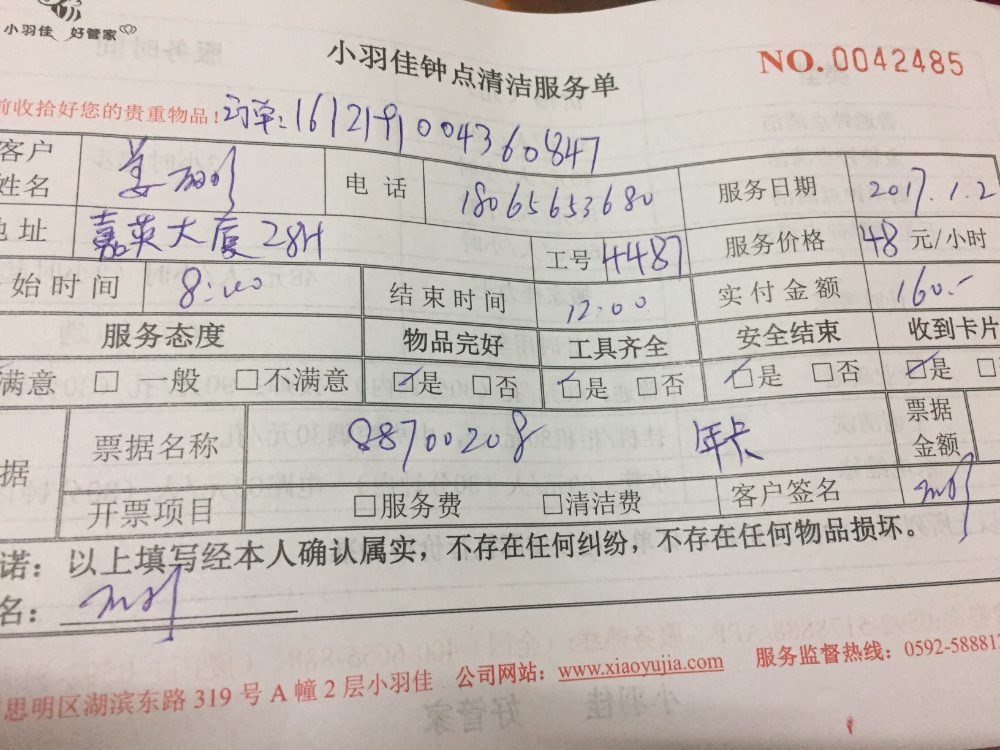 小羽佳 好管家
小羽佳钟点清洁服务单 NO.0042485
前收拾好您的贵重物品! 订单:1612191004360847
客户姓名 姜丽明 电话 18065653680 服务日期 2017.1.2
地址 嘉英大厦28H 工号 4487 服务价格 48 元/小时
始时间 8:00 结束时间 12:00 实付金额 160.-
服务态度 物品完好 工具齐全 安全结束 收到卡片
满意 □ 一般 □不满意 ☑是 □否 ☑是 □否 ☑是 □否 ☑是 □
据 票据名称 88700208 年卡 票据金额
开票项目 □服务费 □清洁费 客户签名
诺: 以上填写经本人确认属实,不存在任何纠纷,不存在任何物品损坏。
名:
思明区湖滨东路 319 号 A 幢 2 层小羽佳 公司网站: www.xiaoyujia.com 服务监督热线: 0592-58881